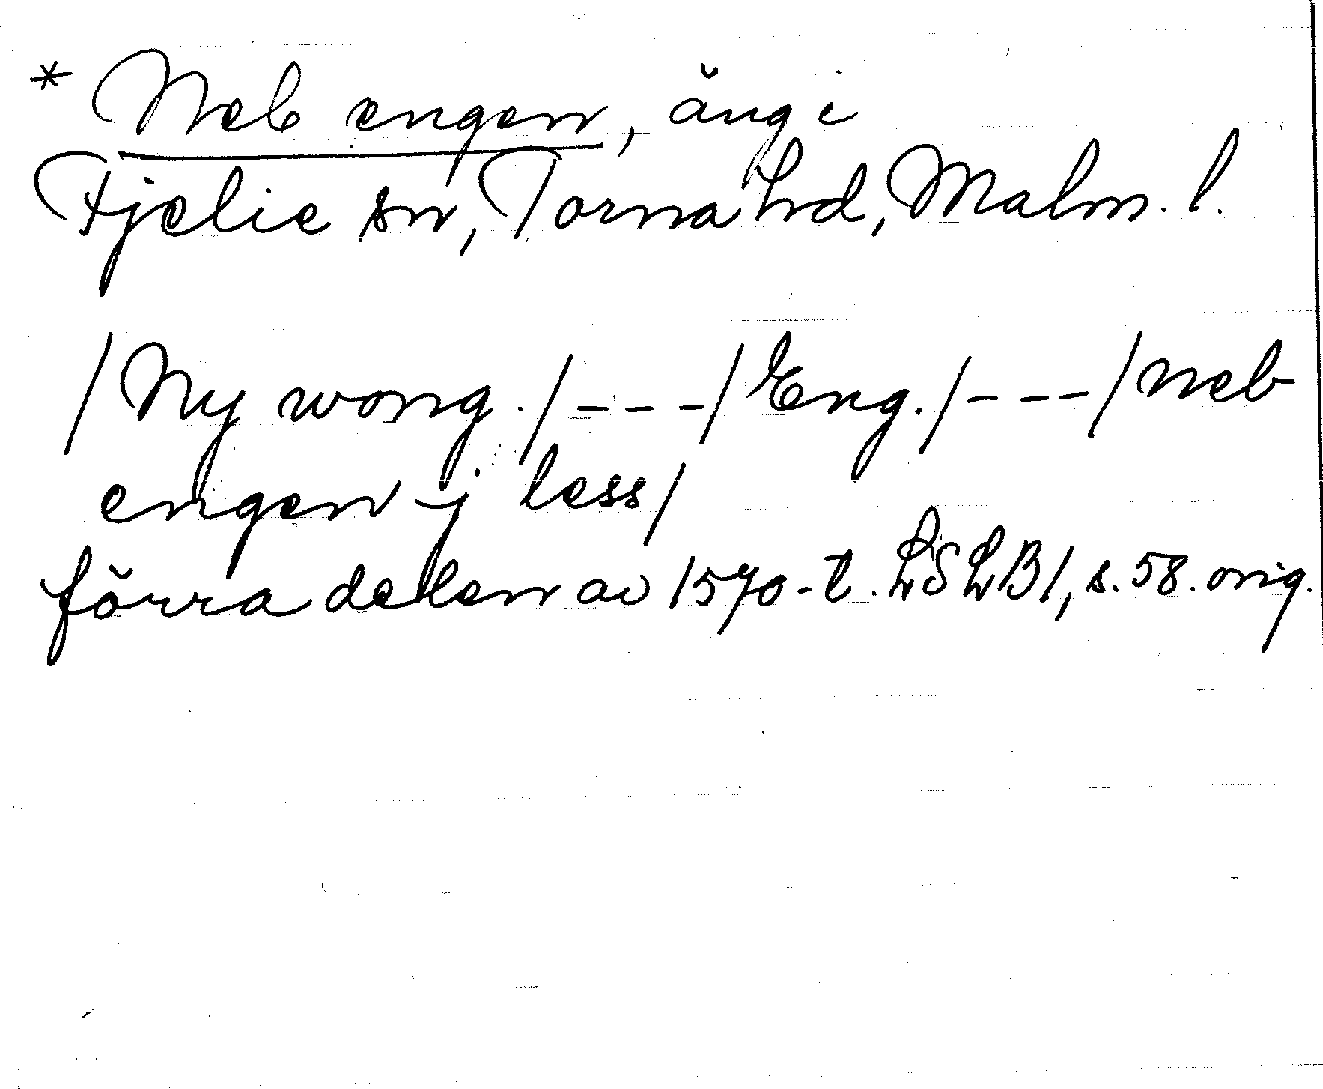 * Neb engen, äng i
Fjelie sn, Torna hd, Malm. l.
/Ny wong./---/Eng./---/neb
engen j less/
förra delen av 1570-t. LSLB1, s. 58. orig.